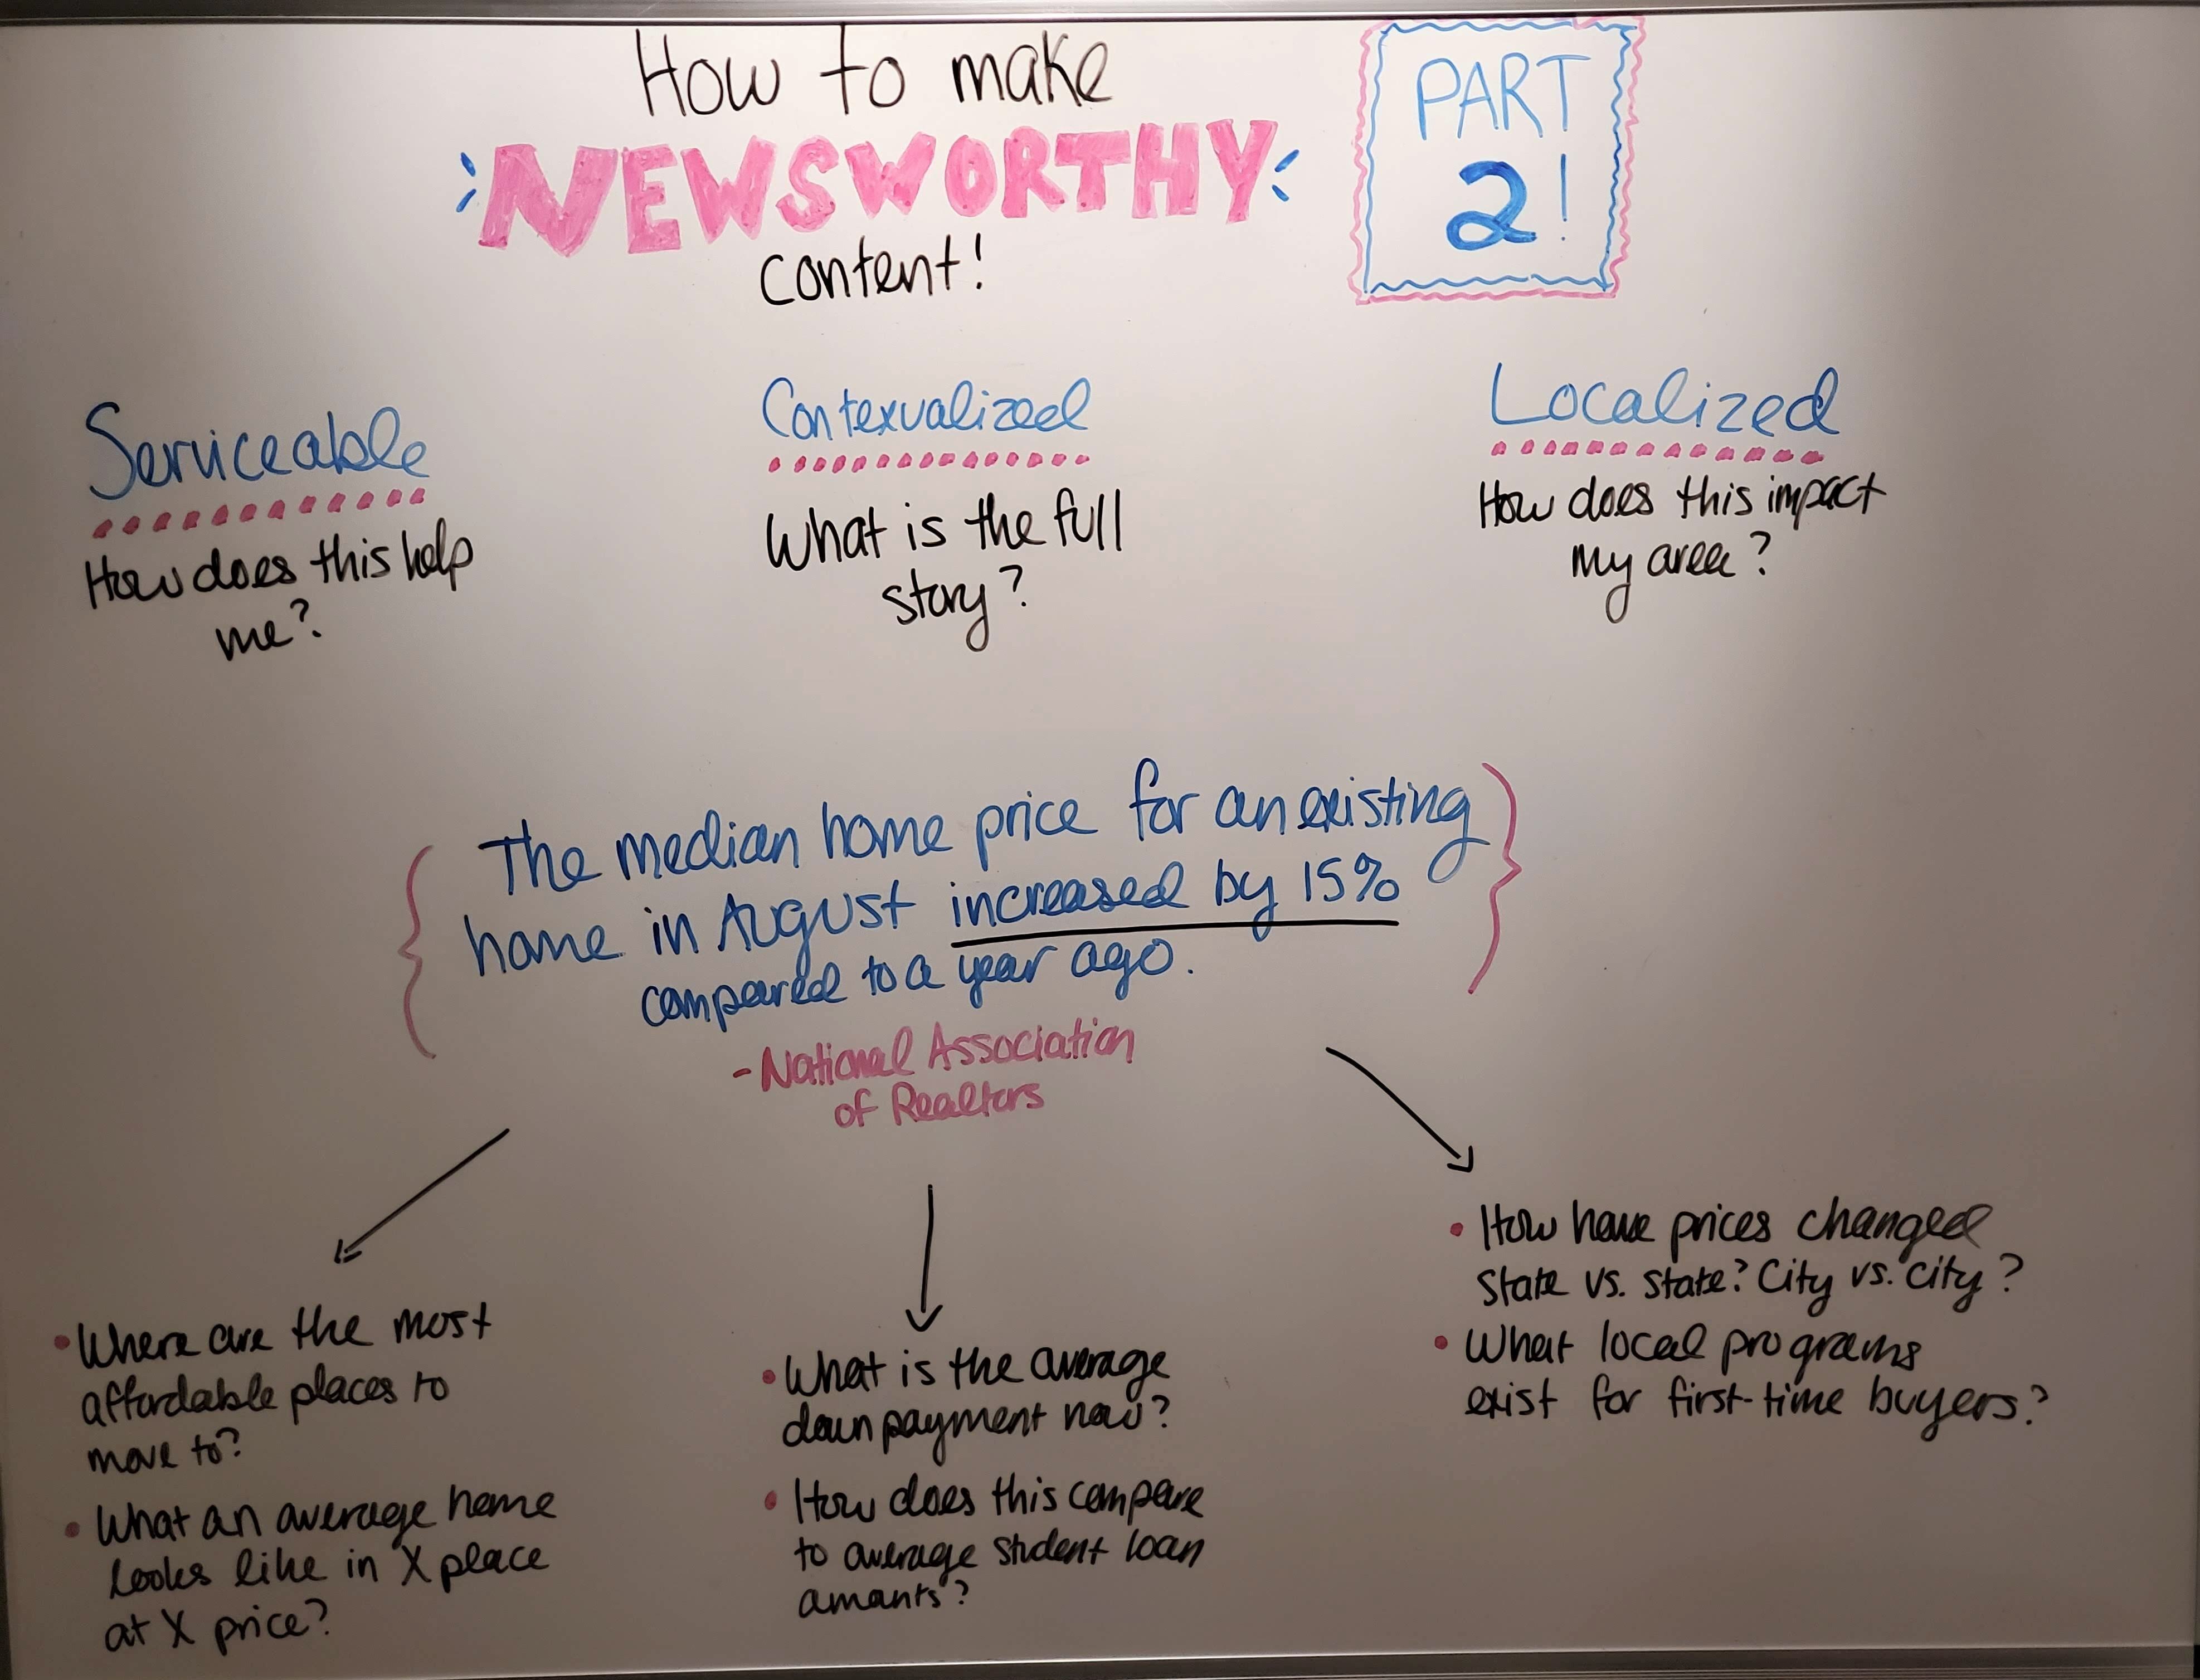 How to make
NEWSWORTHY
content!
PART
2!
Serviceable
How does this help
me?
Contexualized
What is the full
story?
Localized
How does this impact
my area?
The median home price for an existing
home in August increased by 15%
compared to a year ago.
- National Association
of Realtors
• Where are the most
affordable places to
move to?
• What an average home
looks like in X place
at X price?
• What is the average
down payment now?
• How does this compare
to average student loan
amants?
• How have prices changed
state vs. state? City vs. city?
• What local programs
exist for first-time buyers?